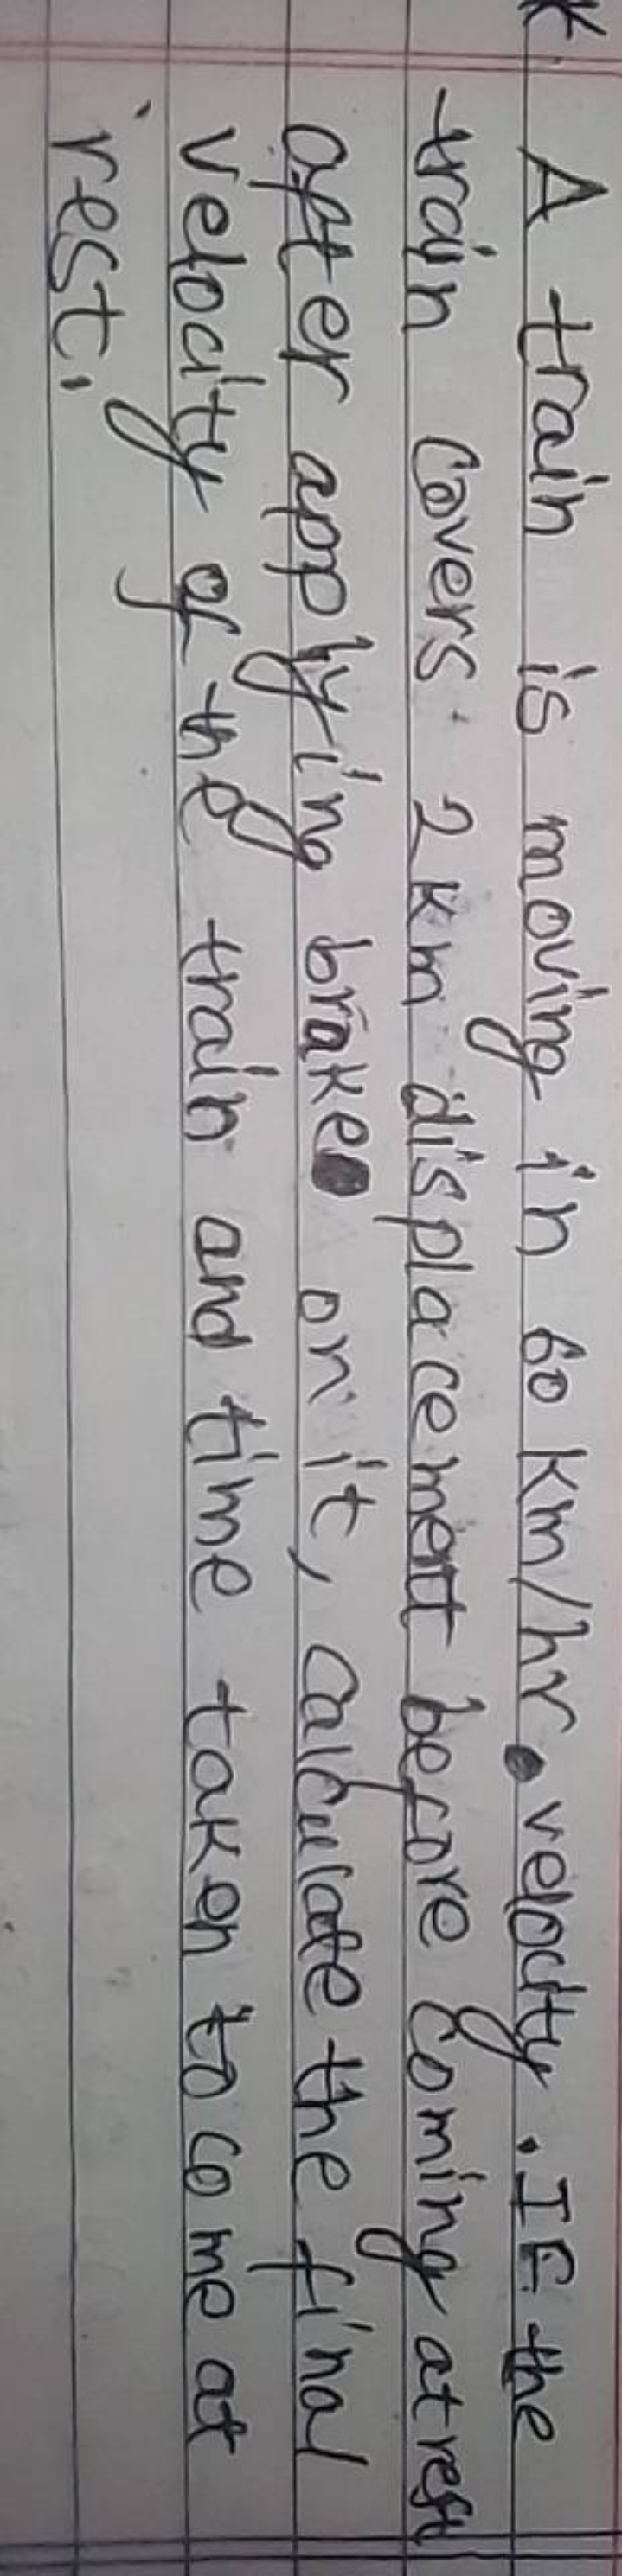 k. A train is moving in 60 km/hr velocity. IF the
train covers 2km displacement before coming at rest
after applying brake on it, calculate the final
velocity of the train and time taken to come at
rest.